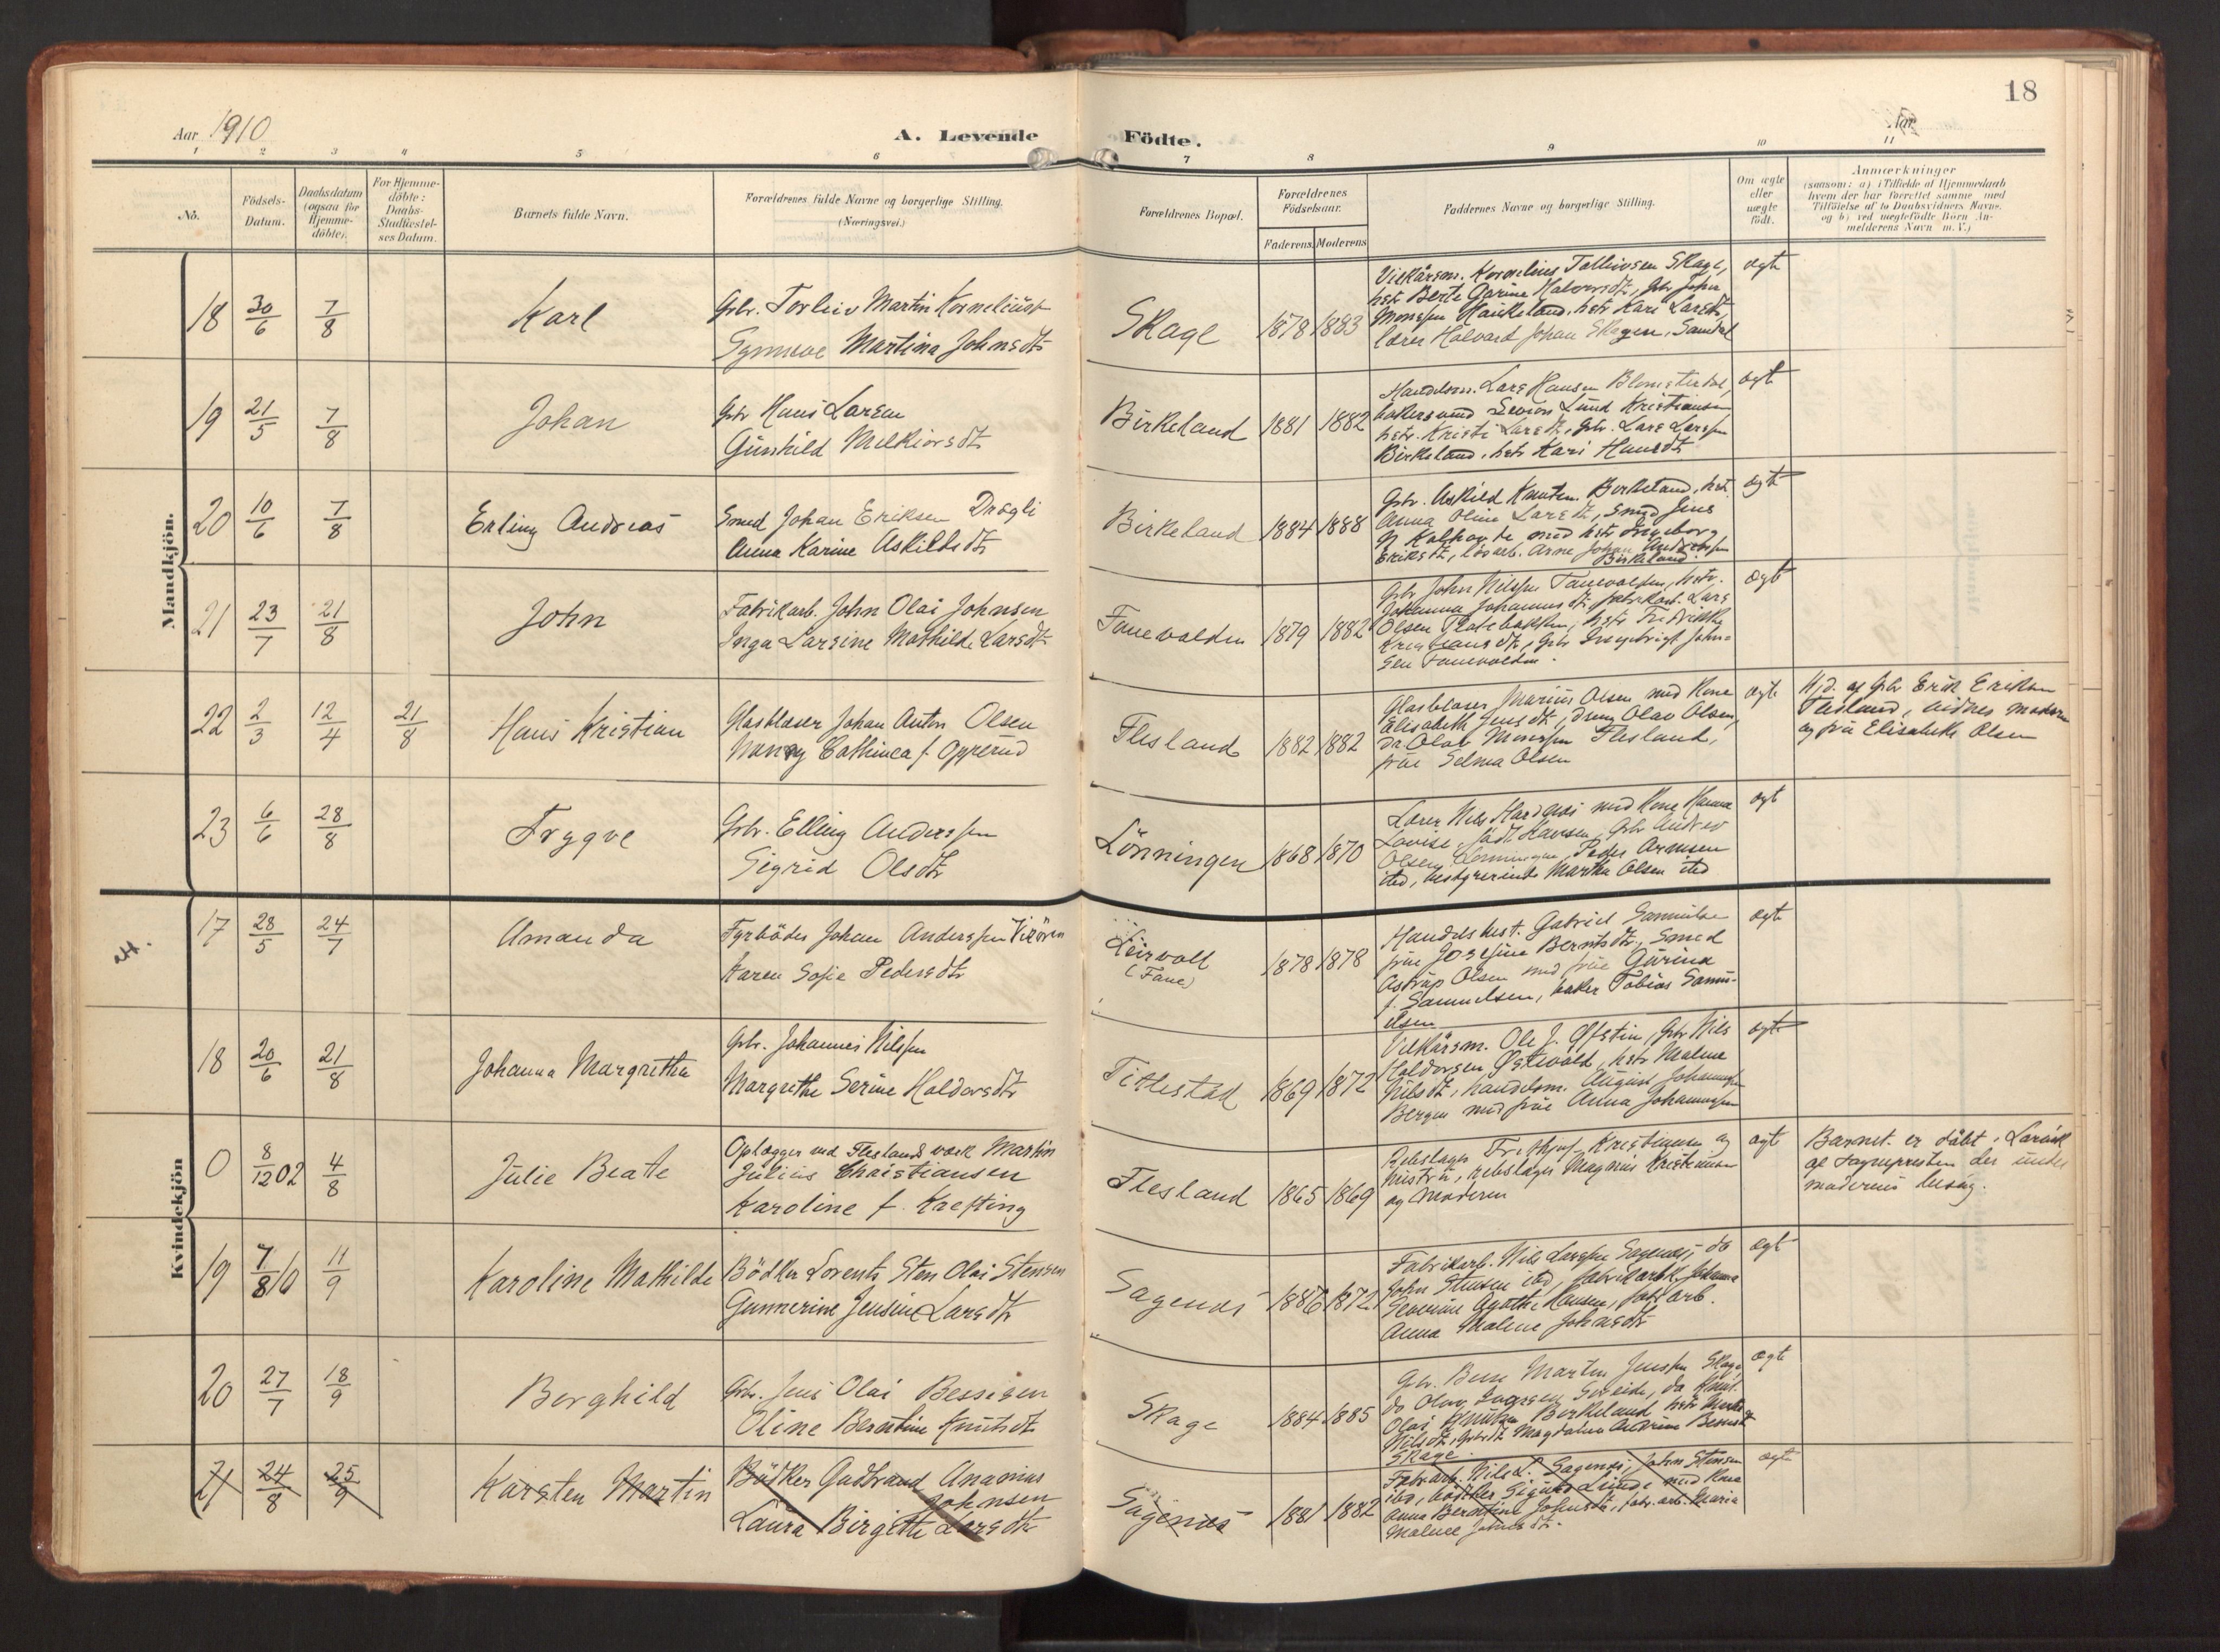 18
Aar 1910
A. Levende Födte.
Aar
1 2 3 4 5 6 7 8 9 10 11
No.
Födsels-
Datum.
Daabsdatum
(ogsaa for
Hjemme-
döbte).
For Hjemme-
döbte:
Daabs-
Stadfæstel-
ses Datum.
Barnets fulde Navn.
Forældrenes fulde Navne og borgerlige Stilling.
(Næringsvei.)
Forældrenes Bopæl.
Forældrenes
Födselsaar.
Faderens. Moderens
Faddernes Navne og borgerlige Stilling.
Om ægte
eller
uægte
födt.
Anmærkninger
(saasom: a) i Tilfælde af Hjemmedaab
hvem der har forrettet samme med
Tilföielse af to Daabsvidners Navne.
og b) ved uægtefödte Börn An-
melderens Navn m. V.)
Mandkjön.
18 30/6 7/8 Karl
Gbr. Torleiv Martin Korneliusen
Synneve Martina Johnsdtr
Skage 1878 1883
Vilkårsm. Kornelius Tolleivsen Skage,
hst. Berte Garine Halvorsdtr, Gbr. John
Monssen Haukeland, hstr Kari Larsdtr,
lærer Halvard Johan Skagen, Samdal
ægte
19 21/5 7/8 Johan
Gbr Hans Larsen
Gunhild Melkiorsdtr
Birkeland 1881 1882
Handelsm. Lars Hansen Blomsterdal,
bakersvend Severin Lund Kristiansen,
hstr. Kristi Larsdtr, Gbr. Lars Larssen
Birkeland, hstr Kari Hansdtr
ægte
20 10/6 7/8 Erling Andreas
Smed Johan Eriksen Drægli
Anna Karine Askildsdtr
Birkeland 1884 1888
Gbr. Askild Knutsen Birkeland, hst.
Anna Oline Larsdtr, Smed Jens
med hstr Ingeborg
Eriksdtr, løsarb. Arne Johan Andreassen
Birkeland
ægte
21 23/7 21/8 John
Fabrikarb. John Olai Johnsen
Inga Larsine Mathilde Larsdtr
Fanevolden 1879 1882
Gbr John Nilssen Fanevolden, hstr.
Johanna Johannesdtr, fabrikarb. Lars
Olsen, hstr Fredrikke
Kristiansdtr, Gbr Ingebrigt John-
sen Fanevolden.
ægte
22 2/3 12/4 21/8 Hans Kristian
Glasblaser Johan Anton Olsen
Nanny Cathinca f. Opperud
Flesland 1882 1882
Glasblaser Marius Olsen med Kone
Elisabeth Jensdtr, dreng Olav Olsen,
do. Olav Monssen Flesland,
frue Selma Olsen
ægte
Hjd. af Gbr Erik Eriksen
Flesland, vidner moderen
og frue Elisabeth Olsen
23 6/6 28/8 Trygve
Gbr. Elling Anderssen
Sigrid Olsdtr
Lönningen 1868 1870
Lærer Nils Hardenes med Kone Hanna
Lovise, født Hansen, Gbr Andreas
Olsen Lønningen, Peder Arnesen
ibd, bestyrerinde Martha Olsen ibd
ægte
Kvindekjön
att.
17 28/5 24/7 Amanda
Fyrböder Johan Anderssen Vixören
Karen Sofie Pedersdtr
Leirvoll
(Fane)
1878 1878
Handelsbest. Gabriel Samuelsen
frue Josefine Berntsdtr, Smed
Astrup Olsen med frue Gurina
f. Samuelsen, baker Tobias Samu-
elsen
ægte
18 20/6 21/8 Johanna Margrethe
Gbr. Johannes Nilssen
Margrethe Serine Haldorsdtr
Titlestad 1869 1872
Vilkårsm. Ole J. Øfstin, Gbr Nils
Haldorsen Østevold, hstr Malene
Nilsdtr, handelsm. August Johannessen
Bergen med frue Anna Johannessen
ægte
0 8/12 02 4/8 Julie Beate
Oplægger ved Flesland værk Martin
Julius Christiansen
Karoline f. Krefting
Flesland 1865 1869
Rebslager Fritkjof Kristiansen og
hustru, rebslager Magnus Kristiansen
og Moderen
ægte
Barnet er døbt i Larvik
af sognepresten der under
moderens besøg.
19 7/8 10 11/9 Karoline Mathilde
Bödker Lorents Sten Olai Stensen
Gunnerine Jensine Larsdtr
Sagenes 1886 1872
Fabrikarb. Nils Larssen Sagenes, do
John Stensen ibd, fabrikarbk. Johanna
Severine Agathe Hansen, fabr.arb.
Anna Malene Johnsdtr
ægte
20 27/7 18/9 Borghild
Gbr. Jens Olai Bessesen
Oline Berntine Knutsdtr
Skage 1884 1885
Gbr. Bese Martin Jenssen Skage,
do Olav, do Knut
Olai Knutsen Birkeland, hstr Marta
Nilsdtr, Magdalena Andrine
Skage
ægte
21 24/8 25/9 Karsten Martin
Bödker Gudbrand Ananias
Johnsen
Laura Birgithe Larsdtr
Sagenes 1881 1882
Fabr.arb. Nils L. Sagenes, John Stensen
ibd, bødker Sigurd Lunde med Kone
Anna Berntine Johnsdtr, fabr.arb. Maria
Malene Johnsdtr.
ægte